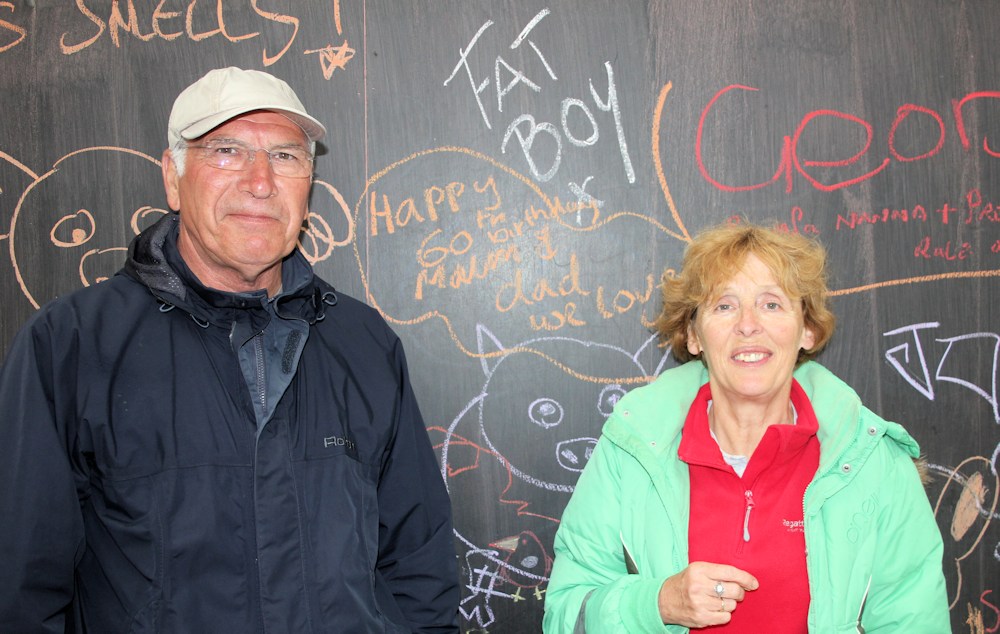 S SMELLS!
FAT
BOY
x
Happy
60th birthday
Mum &
dad
we love
Geor
NANNA +
Regatta